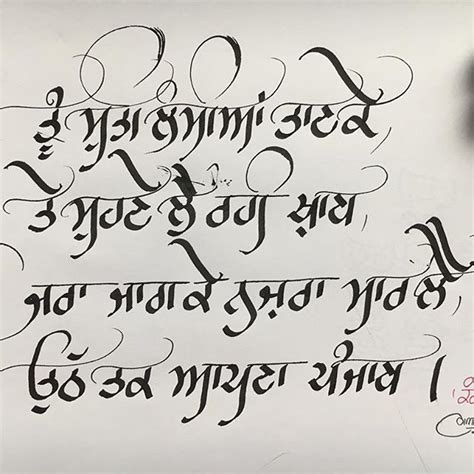 ਤੂੰ ਸੁਤਾ ਲੰਮੀਆਂ ਤਾਣਕੇ,
ਤੇ ਸੁਹਣੇ ਲੈ ਖ਼ਾਬ,
ਜਰਾ ਜਾਗ ਕੇ ਨਜ਼ਰਾ ਮਾਰ ਲੈ,
ਉਠੱ ਤਕ ਆਪਣਾ ਪੰਜਾਬ ।